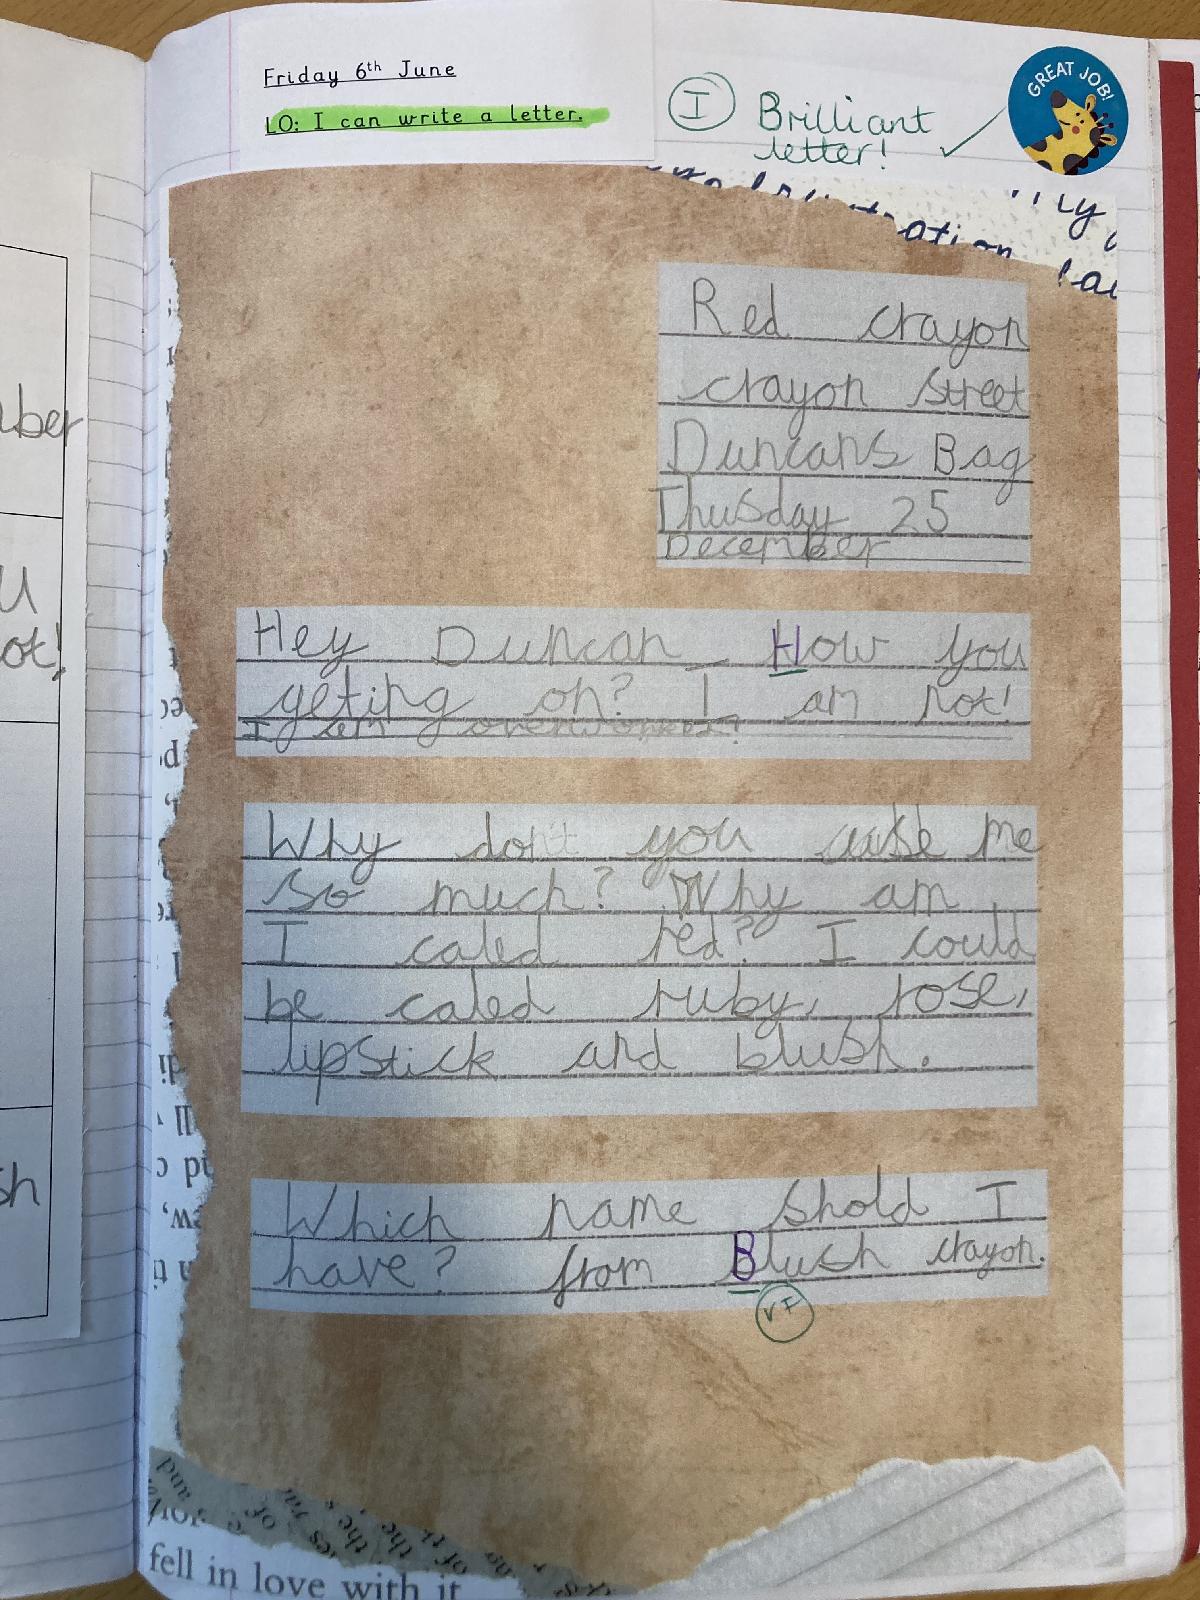 Friday 6th June
LO: I can write a letter.
I Brilliant
letter!
GREAT JOB!
Red crayon
crayon street
Duncans Bag
Thusday 25
December
Hey Duncan How you
geting on? I am not!
I am overworked?
Why don't you use me
so much? Why am
I caled red? I could
be caled ruby, rose,
lipstick and blush.
Which name shold I
have? from Blush crayon.
VF
fell in love with it